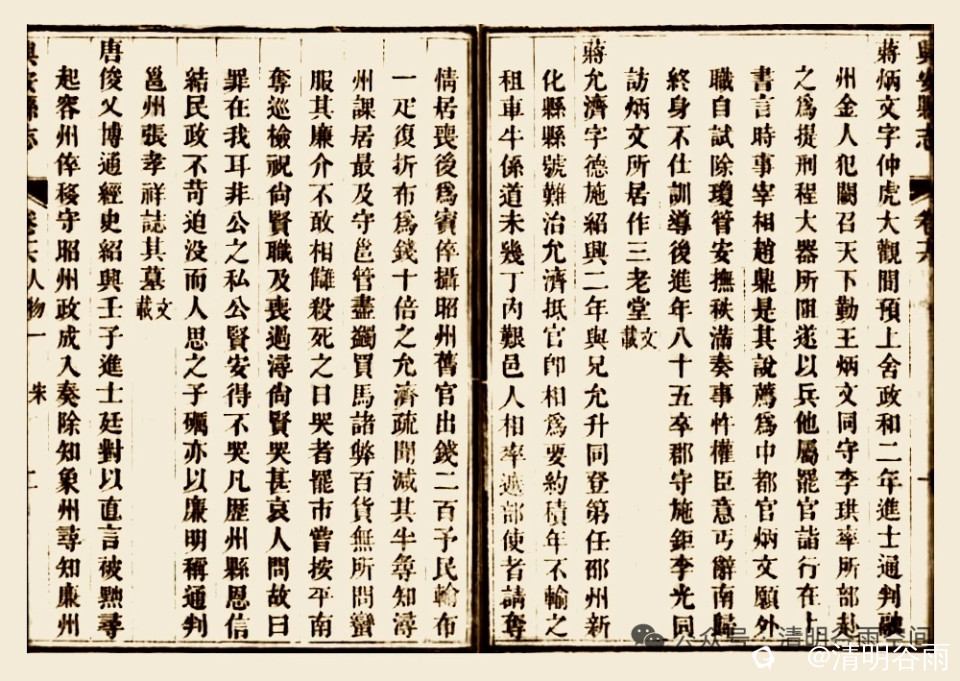 蔣炳文字仲虎大觀間預上舍政和二年進士通判融
州金人犯闕召天下勤王炳文同守李珙率所部赴
之為提刑程大器所阻遂以兵他屬罷官詣行在上
書言時事宰相趙鼎是其說薦為中都官炳文願外
職自試除瓊管安撫秩滿奏事忤權臣意丐辭南歸
終身不仕訓導後進年八十五卒郡守施鉅李光同
訪炳文所居作三老堂文載
蔣允濟字德施紹興二年與兄允升同登第任邵州新
化縣縣號難治允濟抵官即相為要約積年不輸之
租車牛係道未幾丁內艱邑人相率遮部使者請奪
情居喪後為賓倅攝昭州舊官出錢二百予民輸布
一疋復折布為錢十倍之允濟疏聞減其半尋知潯
州課居最及守邕管盡蠲買馬諸弊百貨無所問蠻
服其廉介不敢相讎殺死之日哭者罷市嘗按平南
奪巡檢祝尚賢職及喪過潯尚賢哭甚哀人問故曰
罪在我耳非公之私公賢安得不哭凡歷州縣恩信
結民政不苛迫没而人思之子礪亦以廉明稱通判
邕州張孝祥誌其墓文載
唐俊乂博通經史紹興壬子進士廷對以直言被黜尋
起容州倅移守昭州政成入奏除知象州尋知廉州
興安縣志 卷 人物一 宋
興安縣志 卷
公众号 清明谷雨空间
@清明谷雨